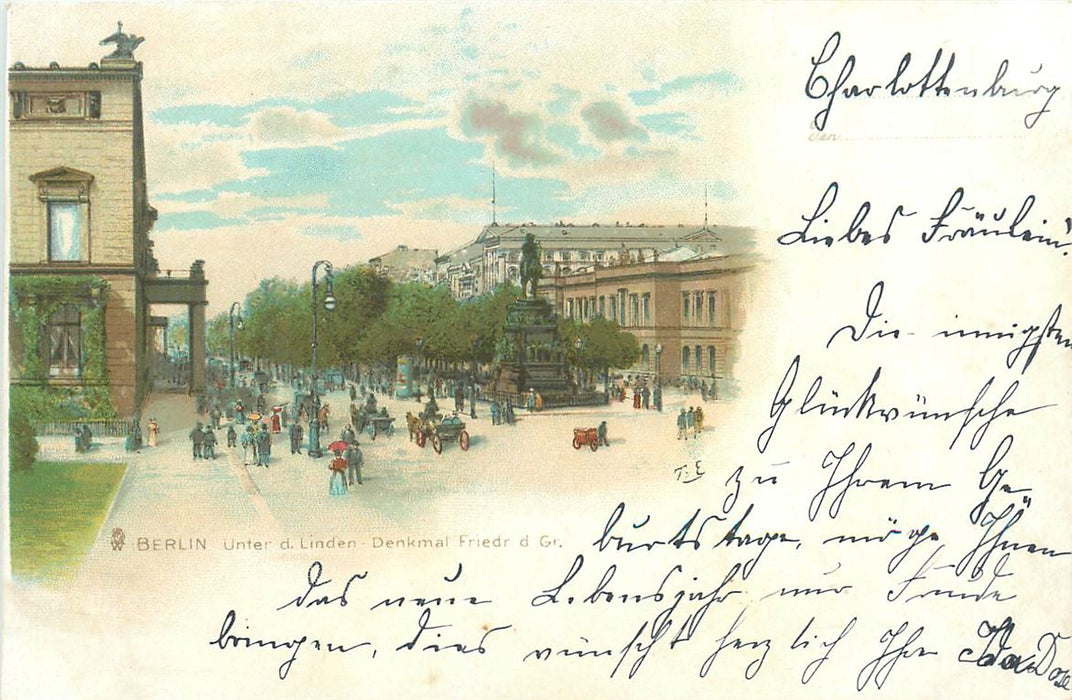 Charlottenburg
den
Liebes Fräulein!
Die innigsten
Glückwünsche
zu Ihrem Ge-
burtstage, möge Ihnen
das neue Lebensjahr nur Freude
bringen, dies wünscht herzlich Ihre
T. E
BERLIN Unter d. Linden - Denkmal Friedr d Gr.